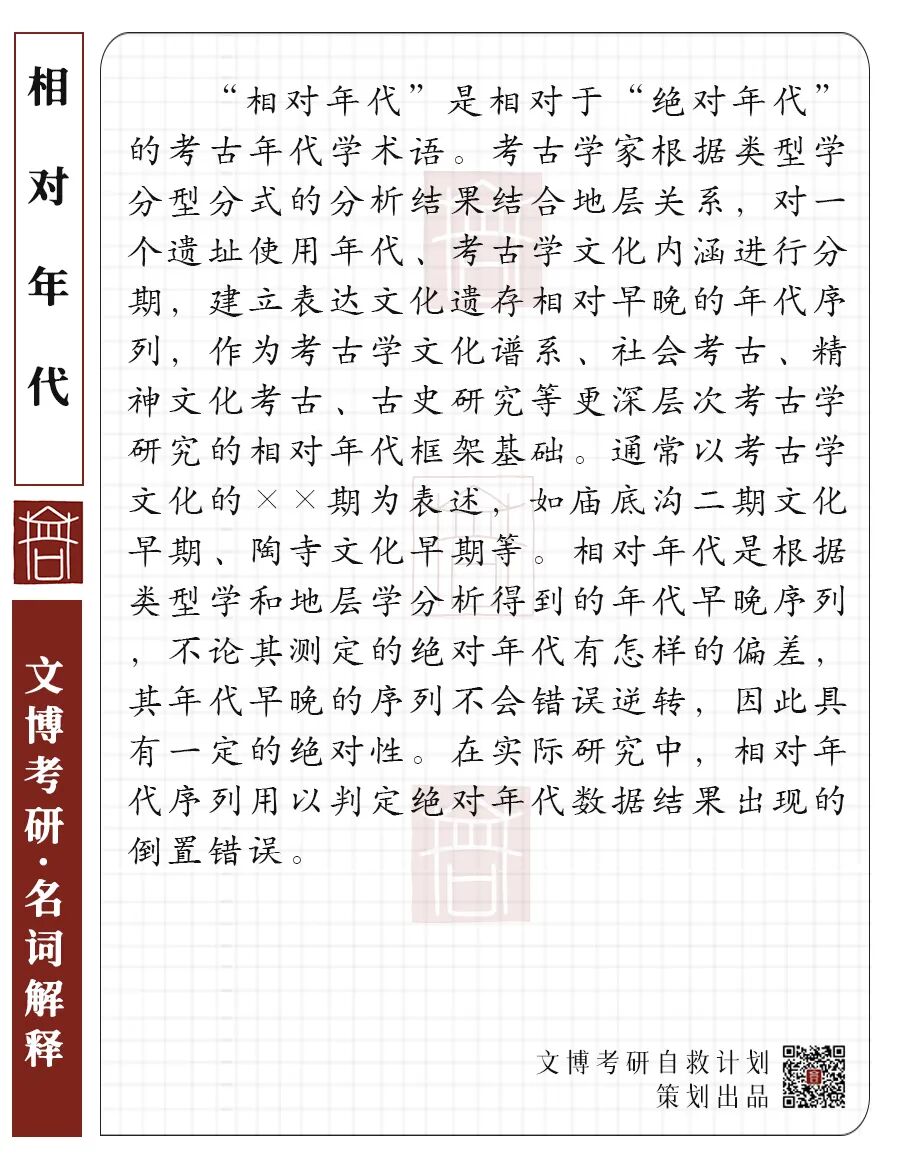 相对年代
文博考研·名词解释
“相对年代”是相对于“绝对年代”
的考古年代学术语。考古学家根据类型学
分型分式的分析结果结合地层关系，对一
个遗址使用年代、考古学文化内涵进行分
期，建立表达文化遗存相对早晚的年代序
列，作为考古学文化谱系、社会考古、精
神文化考古、古史研究等更深层次考古学
研究的相对年代框架基础。通常以考古学
文化的××期为表述，如庙底沟二期文化
早期、陶寺文化早期等。相对年代是根据
类型学和地层学分析得到的年代早晚序列
，不论其测定的绝对年代有怎样的偏差，
其年代早晚的序列不会错误逆转，因此具
有一定的绝对性。在实际研究中，相对年
代序列用以判定绝对年代数据结果出现的
倒置错误。
文博考研自救计划
策划出品